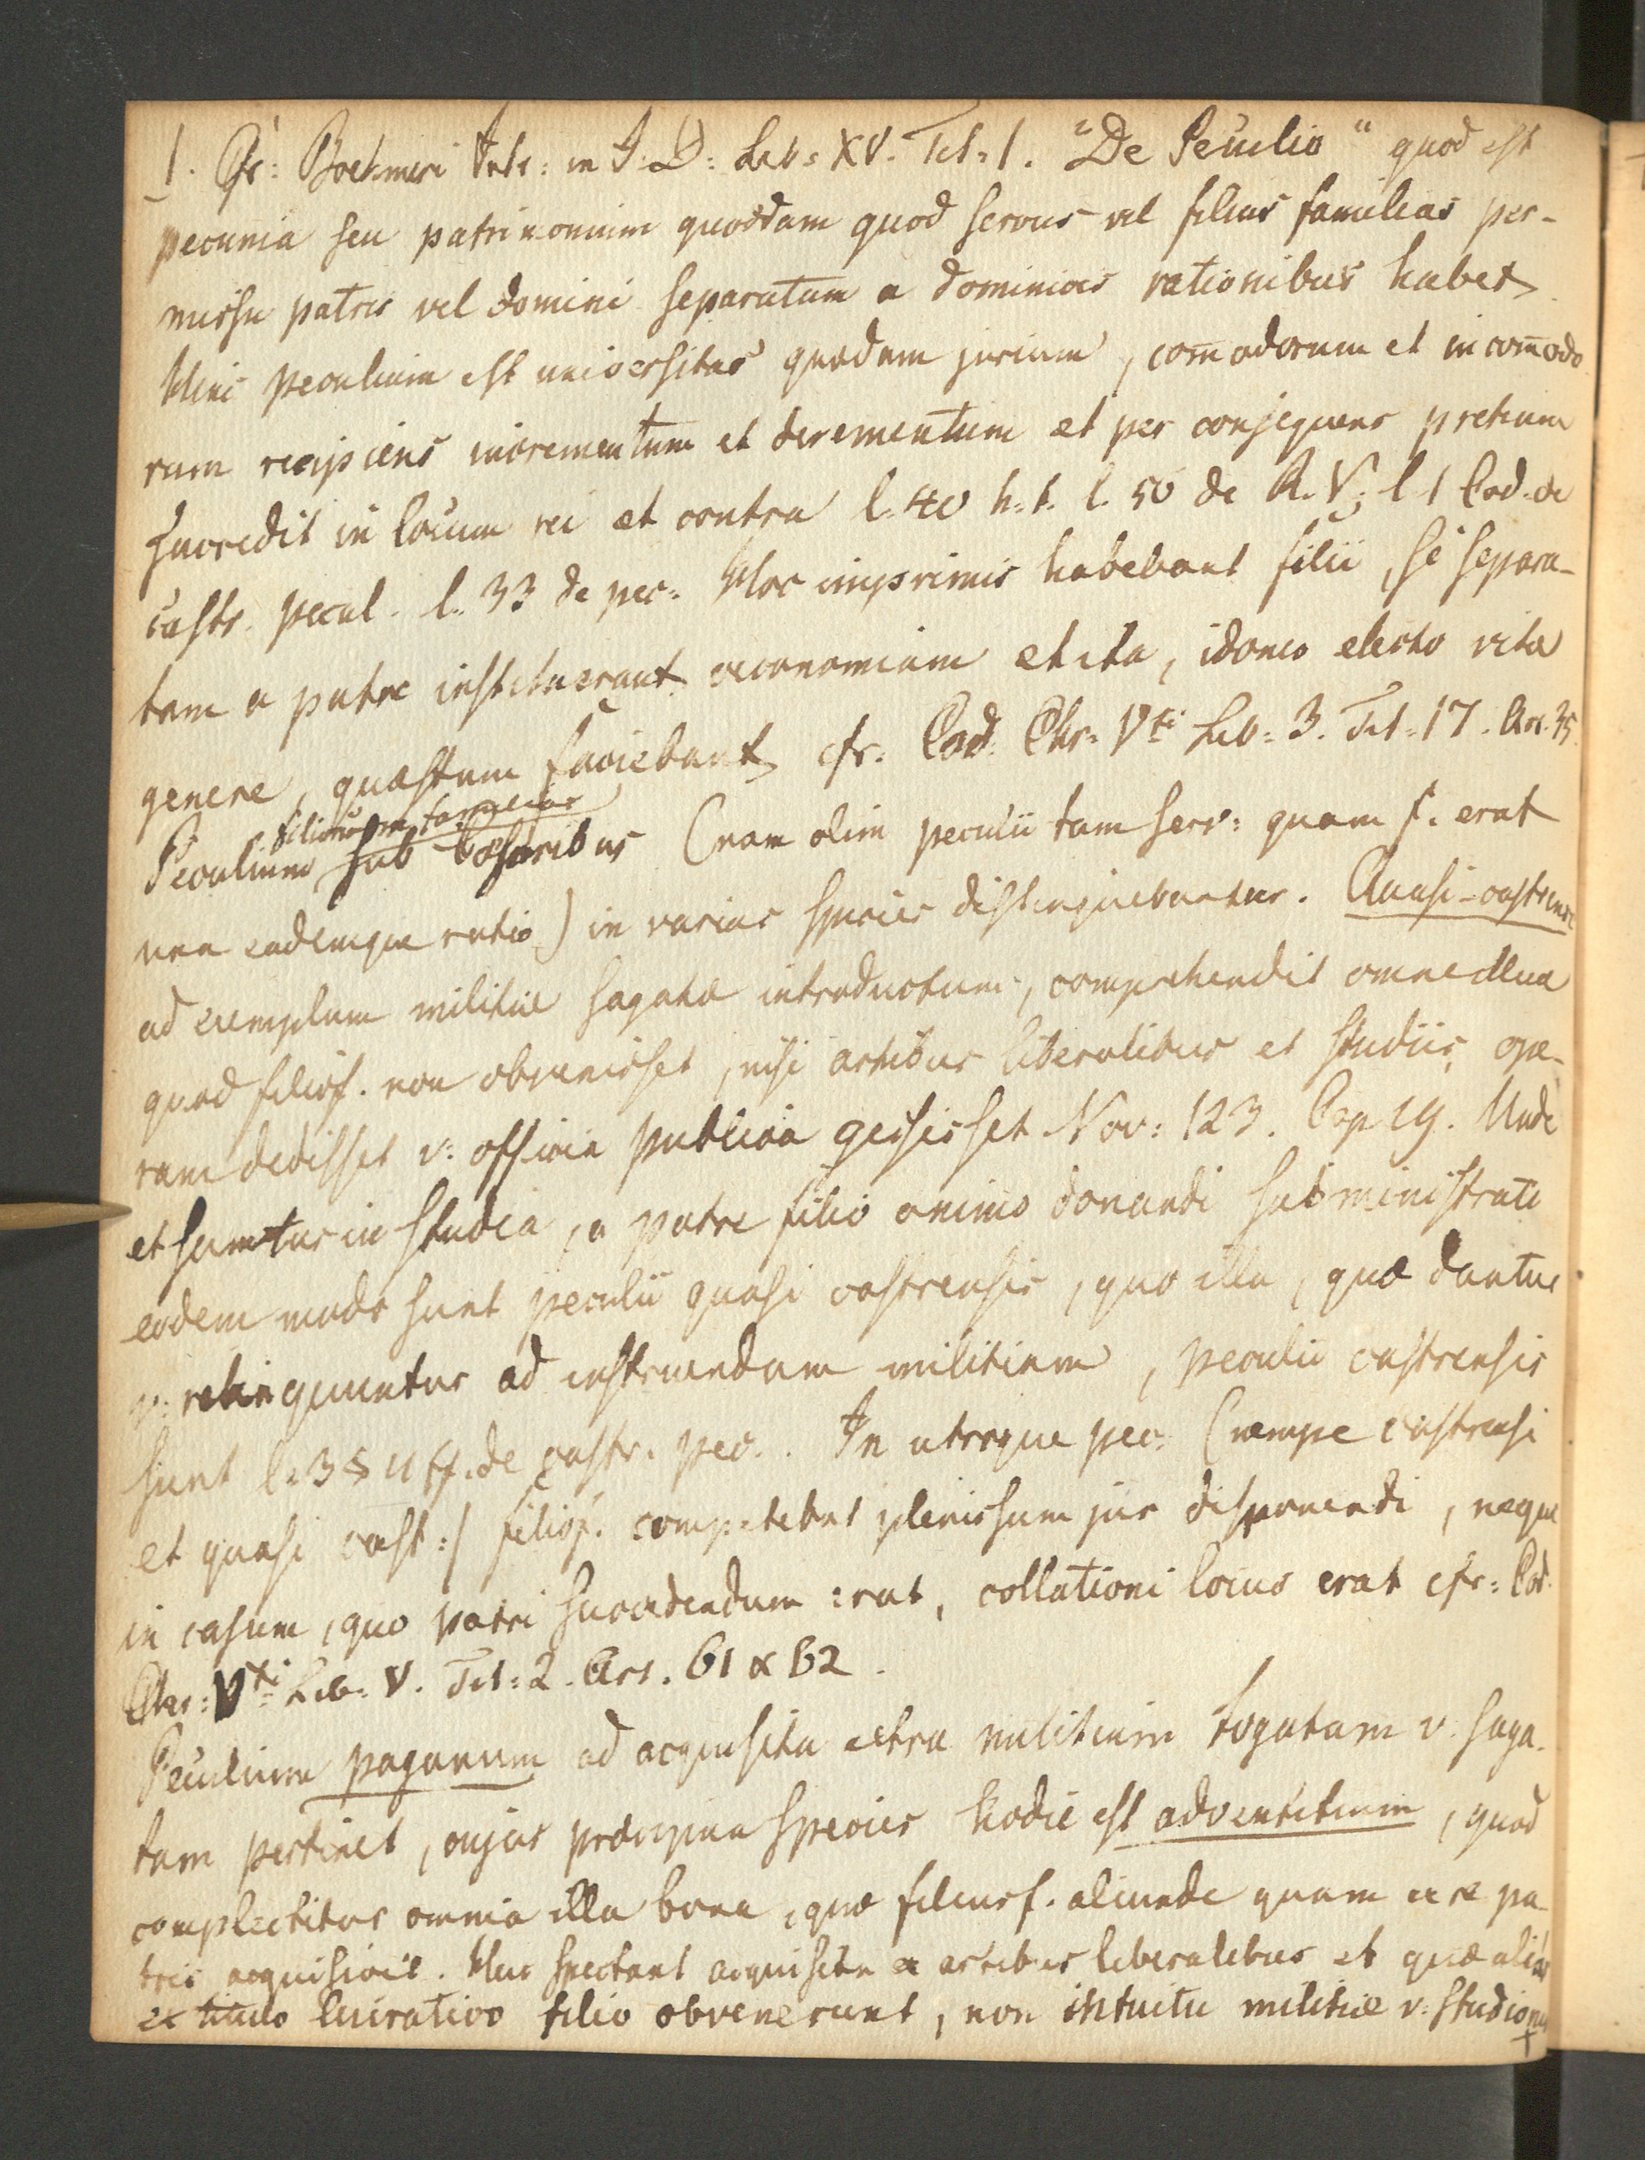 1. Cfr: Boehmeri Intr: in I: D: Lib: XV. Tit: 1. "De Peculio" quod est
pecunia seu patrimonium quoddam quod servus vel filius familias per-
missu patris vel domini separatum a dominicis rationibus habet
Hinc peculium est universitas quædam jurium, com̄odorum et incom̄odo
rum recipiens incrementum et decrementum et per consequens pretium
succedit in locum rei et contra l. 40 h. t. l. 56 de R. V; l 1 Cod. de
castr. pecul. l. 33 de pec: Hoc imprimis habebant filii, si separa-
tam a patre instituerant oeconomiam et ita, idoneo electo vitæ
genere, quæstum faciebant cfr: Cod. Chr: Vti Lib: 3. Tit: 17. Art. 35.
filiorum familias
Peculium sub Cæsaribus (nam olim peculii tam serv: quam f. erat
una eademque ratio) in varias species distinguebantur. Quasi-castrense
ad exemplum militiæ sagatæ introductum, comprehendit omne illud
quod filiof. non obvenisset, nisi artibus liberalibus et studiis, ope-
ram dedisset v: officia publica gessisset Nov: 123. Cap 19. Unde
et sumtus in studia, a patre filio animo donandi subministrati
eodem modo sunt peculii quasi castrensis, quo illa, quæ dantur
v: relinquuntur ad instruendam militiam, peculii castrensis
sunt l. 3 § 4 ff. de castr. pec.. In utroque pec: (nempe castrensi
et quasi cast:/ filiof. competebat plenissum jus disponendi, neque
in casum, quo patri succedendum erat, collationi locus erat cfr: Cod.
Chr: Vti Lib: V. Tit: 2. Art. 61 & 62.
Peculium paganum ad acquisita extra militiam togatam v. saga-
tam pertinet, cujus præcipua species hodie est adventitium, quod
complectitur omnia illa bona, quæ filiusf. aliunde quam ex re pa-
tris acquisivit. Huc spectant acquisita ex artibus liberalibus et quæ alias
ex titulo lucrativo filio obvenerunt, non intuitu militiæ v: studiorum